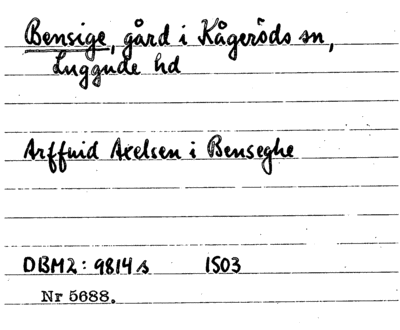 Bensige, gård i Kågeröds sn,
Luggude hd
Arffuid Axelsen i Benseghe
DBM2: 9814 s 1503
Nr 5688.